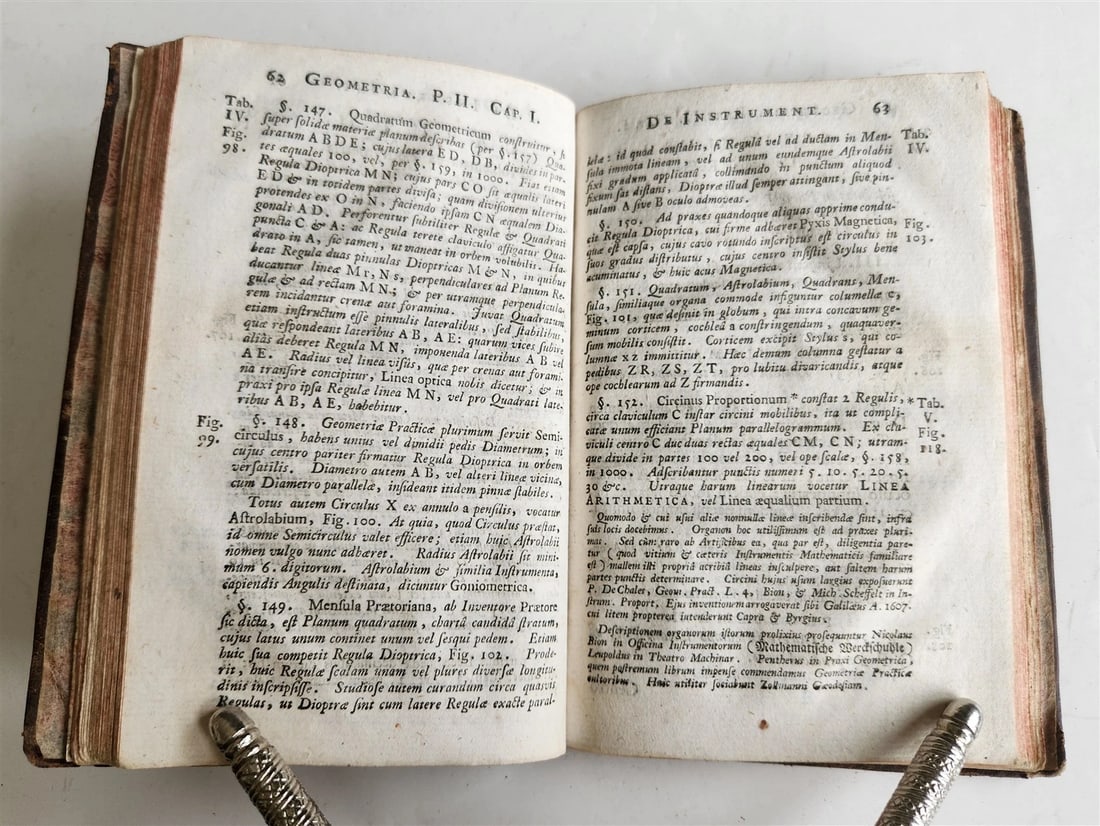 62 GEOMETRIA. P. II. CAP. I.
Tab. IV. Fig. 98.
§. 147. Quadratum Geometricum construitur, si
super solidæ materiæ planum describas (per §. 157) Qua-
dratum ABDE; cujus latera ED, DB, divides in par-
tes æquales 100, vel, per §. 159, in 1000. Fiat etiam
Regula Dioptrica MN; cujus pars CO sit æqualis lateri
ED & in totidem partes divisa; quam divisionem ulterius
protendes ex O in N, faciendo ipsam CN æqualem Dia-
gonali AD. Perforentur subtiliter Regulæ & Quadrati
puncta C & A: ac Regula terete claviculo affigatur Qua-
drato in A, sic tamen, ut maneat in orbem volubilis. Ha-
beat Regula duas pinnulas Dioptricas M & N, in quibus
ducantur lineæ Mr, Ns, perpendiculares ad Planum Re-
gulæ & ad rectam MN; & per utramque perpendicula-
rem incidantur crenæ aut foramina. Juvat Quadratum
etiam instructum esse pinnulis lateralibus, sed stabilibus,
quæ respondeant lateribus AB, AE: quarum vices subire
aliàs deberet Regula MN, imponenda lateribus AB vel
AE. Radius vel linea visûs, quæ per crenas aut forami-
na transire concipitur, Linea optica nobis dicetur; & in
praxi pro ipsa Regulæ linea MN, vel pro Quadrati late-
ribus AB, AE, habebitur.
Fig. 99.
§. 148. Geometriæ Practicæ plurimum servit Semi-
circulus, habens unius vel dimidii pedis Diametrum; in
cujus centro pariter firmatur Regula Dioptrica in orbem
versatilis. Diametro autem AB, vel alteri lineæ vicinæ,
cum Diametro parallelæ, insideant itidem pinnæ stabiles.
Totus autem Circulus X ex annulo a pensilis, vocatur
Astrolabium, Fig. 100. At quia, quod Circulus præstat,
id omne Semicirculus valet efficere; etiam huic Astrolabii
nomen vulgo nunc adhæret. Radius Astrolabii sit mini-
mum 6. digitorum. Astrolabium & similia Instrumenta,
capiendis Angulis destinata, dicuntur Goniometrica.
§. 149. Mensula Prætoriana, ab Inventore Prætore
sic dicta, est Planum quadratum, chartâ candidâ stratum,
cujus latus unum continet unum vel sesqui pedem. Etiam
huic sua competit Regula Dioptrica, Fig. 102. Prode-
rit, huic Regulæ scalam unam vel plures diversæ longitu-
dinis inscripsisse. Studiose autem curandum circa quasvis
Regulas, ut Dioptræ sint cum latere Regulæ exacte paral-
DE INSTRUMENT. 63
lelæ: id quod constabit, si Regulâ vel ad ductam in Men-
sula immota lineam, vel ad unum eundemque Astrolabii
fixi gradum applicatâ, collimando in punctum aliquod
fixum sat distans, Dioptræ illud semper attingant, sive pin-
nulam A sive B oculo admoveas.
Tab. IV.
§. 150. Ad praxes quandoque aliquas apprime condu-
cit Regula Dioptrica, cui firme adhæret Pyxis Magnetica,
quæ est capsa, cujus cavo rotundo inscriptus est circulus in
suos gradus distributus, cujus centro insistit Stylus bene
acuminatus, & huic acus Magnetica.
Fig. 103.
§. 151. Quadratum, Astrolabium, Quadrans, Men-
sula, similiaque organa commode infiguntur columellæ c,
Fig. 101, quæ desinit in globum, qui intra concavum ge-
minum corticem, cochleâ a constringendum, quaquaver-
sum mobilis consistit. Corticem excipit Stylus s, qui co-
lumnæ xz immittitur. Hæc demum columna gestatur a
pedibus ZR, ZS, ZT, pro lubitu divaricandis, atque
ope cochlearum ad Z firmandis.
§. 152. Circinus Proportionum * constat 2 Regulis,
circa claviculum C instar circini mobilibus, ita ut compli-
catæ unum efficiant Planum parallelogrammum. Ex cla-
viculi centro C duc duas rectas æquales CM, CN; utram-
que divide in partes 100 vel 200, vel ope scalæ, §. 158,
in 1000. Adscribantur punctis numeri 5. 10. 5. 20. 5.
30 &c. Utraque harum linearum vocetur LINEA
ARITHMETICA, vel Linea æqualium partium.
* Tab. V. Fig. 118.
Quomodo & cui usui aliæ nonnullæ lineæ inscribendæ sint, infra
suis locis docebimus. Organon hoc utilissimum est ad praxes pluri-
mas. Sed cùm raro ab Artificibus ea, qua par est, diligentia pare-
tur (quod vitium & cæteris Instrumentis Mathematicis familiare
est) mallem isti propriâ acribiâ lineas insculpere, aut saltem harum
partes punctis determinare. Circini hujus usum largius exposuerunt
P. De Chales, Geom. Pract. L. 4, Bion, & Mich. Scheffelt in In-
strum. Proport. Ejus inventionem arrogaverat sibi Galilæus A. 1607.
cui litem propterea intenderunt Capra & Byrgius.
Descriptionem organorum istorum prolixius prosequuntur Nicolaus
Bion in Officina Instrumentorum (Mathematische Werckschuhle)
Leupoldus in Theatro Machinar. Pentherus in Praxi Geometrica,
quem postremum librum impense commendamus Geometriæ Practicæ
cultoribus. Huic utiliter sociabunt Zollmanni Gæodesiam.